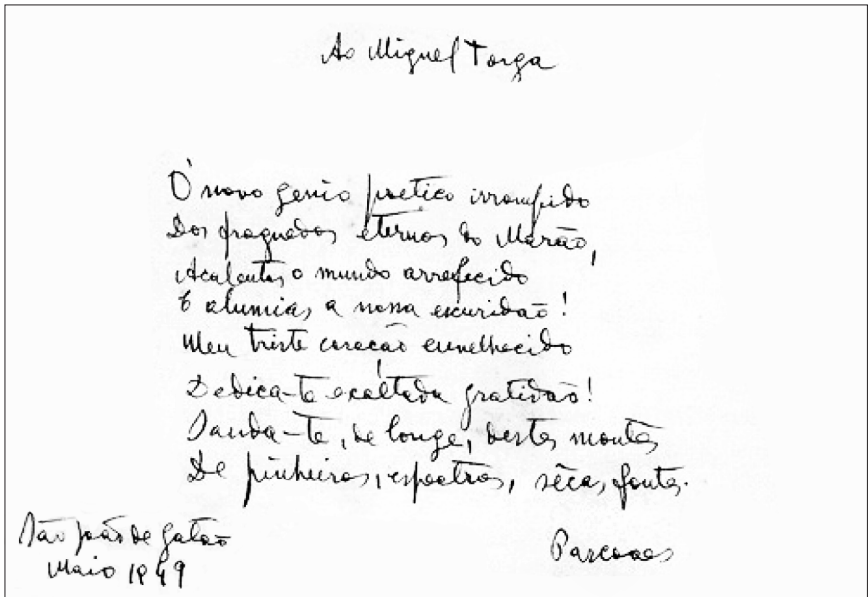 Ao Miguel Torga
Ó novo genio poetico irrompido
Dos fraguedos eternos do Marão,
Acalentas o mundo arrefecido
E alumias a nossa escuridão!
Meu triste coração envelhecido
Dedica-te exaltada gratidão!
Sauda-te, de longe, destes montes
De pinheiros, espectros, sêcas fontes.
São João de Gatão
Maio 1949
Pascoaes